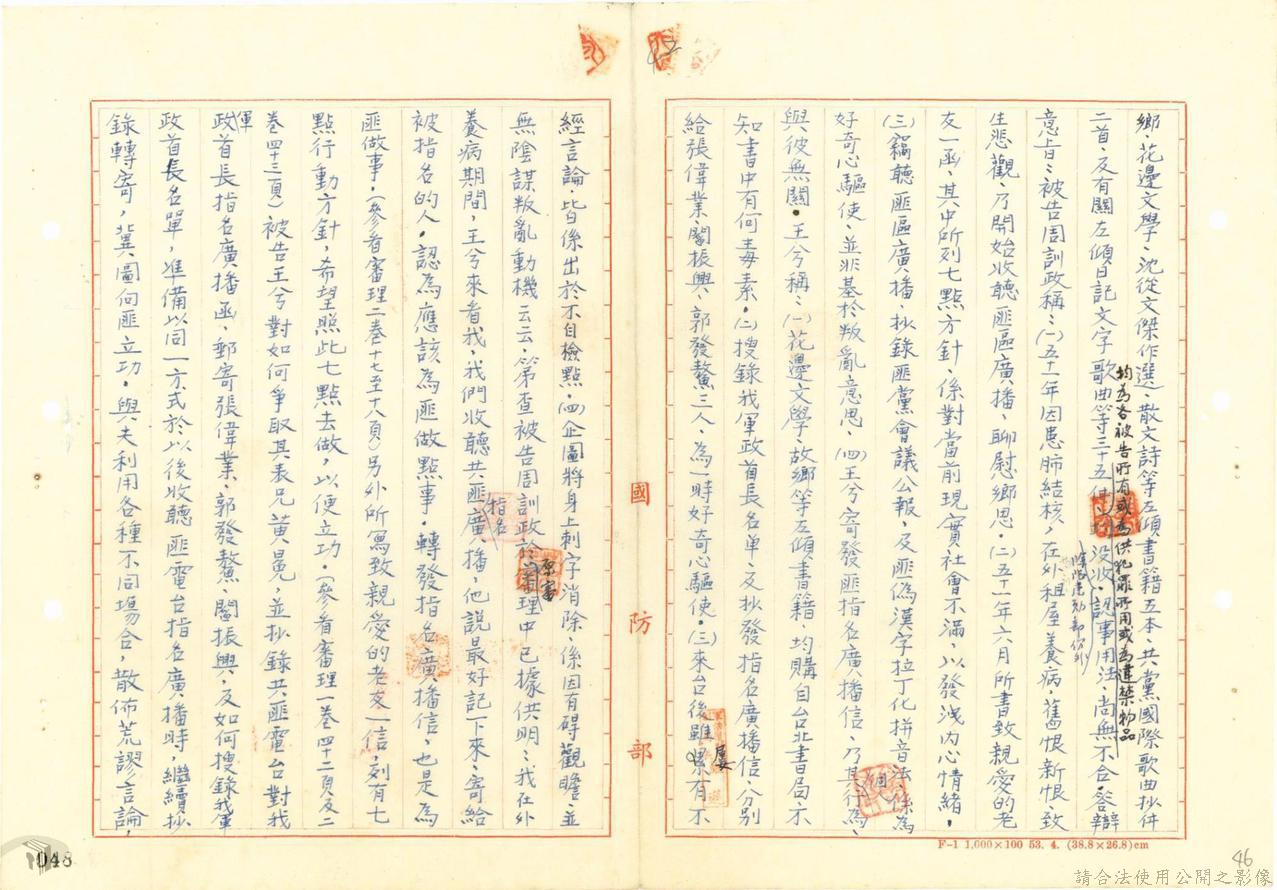 鄉、花邊文學、沈從文傑作選、散文詩等左傾書籍五本、共黨國際歌曲抄件
二首、及有關左傾日記文字歌曲等三十五件
均為各被告所有或為供犯罪所用或為違禁物品
沒收、認事用法、尚無不合。答辯
意旨：被告周訓政稱：(一)五十一年因患肺結核，在外租屋養病，舊恨新恨，致
生悲觀，乃開始收聽匪區廣播，聊慰鄉思。(二)五十一年六月所書致親愛的老
友一函，其中所列七點方針，係對當前現實社會不滿，以發洩內心情緒。
(三)竊聽匪區廣播，抄錄匪黨會議公報，及匪偽漢字拉丁化拼音法，係為
好奇心驅使，並非基於叛亂意思、(四)王兮寄發匪指名廣播信、乃其個人行為、
與彼無關。王兮稱：(一)花邊文學、故鄉等左傾書籍，均購自台北書局，不
知書中有何毒素。(二)搜錄我軍政首長名單、及抄發指名廣播信、分別
給張偉業、閻振興、郭發鰲三人，為一時好奇心驅使。(三)來台後雖屢有不
經言論，皆係出於不自檢點。(四)企圖將身上刺字消除，係因有碍觀瞻，並
無陰謀叛亂動機云云。第查被告周訓政於原審審理中，已據供明：我在外
養病期間，王兮來看我，我們收聽共匪指名廣播，他說最好記下來，寄給
被指名的人，認為應該為匪做點事。轉發指名廣播信，也是為
匪做事。(參看審理二卷十七至十八頁)另外所寫致親愛的老友一信，列有七
點行動方針，希望照此七點去做，以便立功。(參看審理一卷四十二頁及二
卷四十三頁)被告王兮對如何爭取其表兄黃晃，並抄錄共匪電台對我軍
政首長指名廣播函，郵寄張偉業、郭發鰲、閻振興，及如何搜錄我軍
政首長名單，准備以同一方式於以後收聽匪電台指名廣播時，繼續抄
錄轉寄，冀圖向匪立功。與夫利用各種不同場合，散佈荒謬言論，
國防部
F-1 1,000×100 53. 4. (38.8×26.8)cm
46
048
請合法使用公開之影像